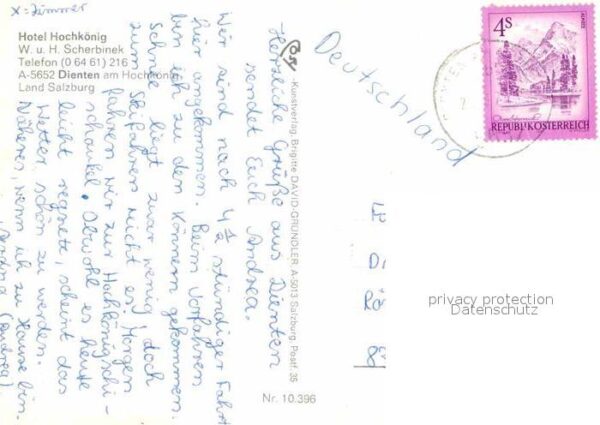 x = Zimmer
Hotel Hochkönig
W. u. H. Scherbinek
Telefon (0 64 61) 216
A-5652 Dienten am Hochkönig
Land Salzburg
Herzliche Grüße aus Dienten
sendet Euch Andrea.
Wir sind nach 4 1/2 stündiger Fahrt
hier angekommen. Beim Vorfahren
bin ich zu den Könnern gekommen.
Schnee liegt zwar wenig, doch
zum Skifahren reicht es. Morgen
fahren wir zur Hochkönigschi-
schaukel. Obwohl es heute
leicht regnete, scheint das
Wetter schön zu werden.
Näheres, wenn ich zu Hause bin.
(Andrea)
Kunstverlag Brigitte DAVID-GRÜNDLER A-5013 Salzburg, Postf. 35
Nr. 10.396
Deutschland
4S
ALMSEE
REPUBLIK ÖSTERREICH
privacy protection
Datenschutz